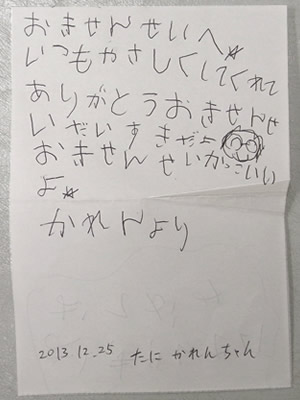 おきせんせいへ☆
いつもやさしくしてくれて
ありがとうおきせんせ
いだいすきだよ
おきせんせいかっこいい
よ☆
かれんより
2013.12.25 たに かれんちゃん